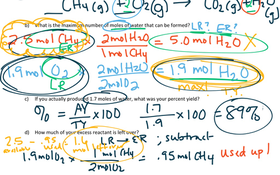 CH4(g) + 2O2(g) → CO2(g) +
b) What is the maximum number of moles of water that can be formed? LR? ER?
2.5 mol CH4 x 2molH2O = 5.0 mol H2O X
ER 1molCH4
1.9 mol O2 x 2molH2O = 1.9 mol H2O
LR 2molO2 max!
c) If you actually produced 1.7 moles of water, what was your percent yield?
% = AY x100 1.7 x100 = 89%
TY 1.9
d) How much of your excess reactant is left over?
2.5 - .95 = LR → ER ; subtract
1.9molO2 x 1molCH4 = .95molCH4 used up!
2molO2